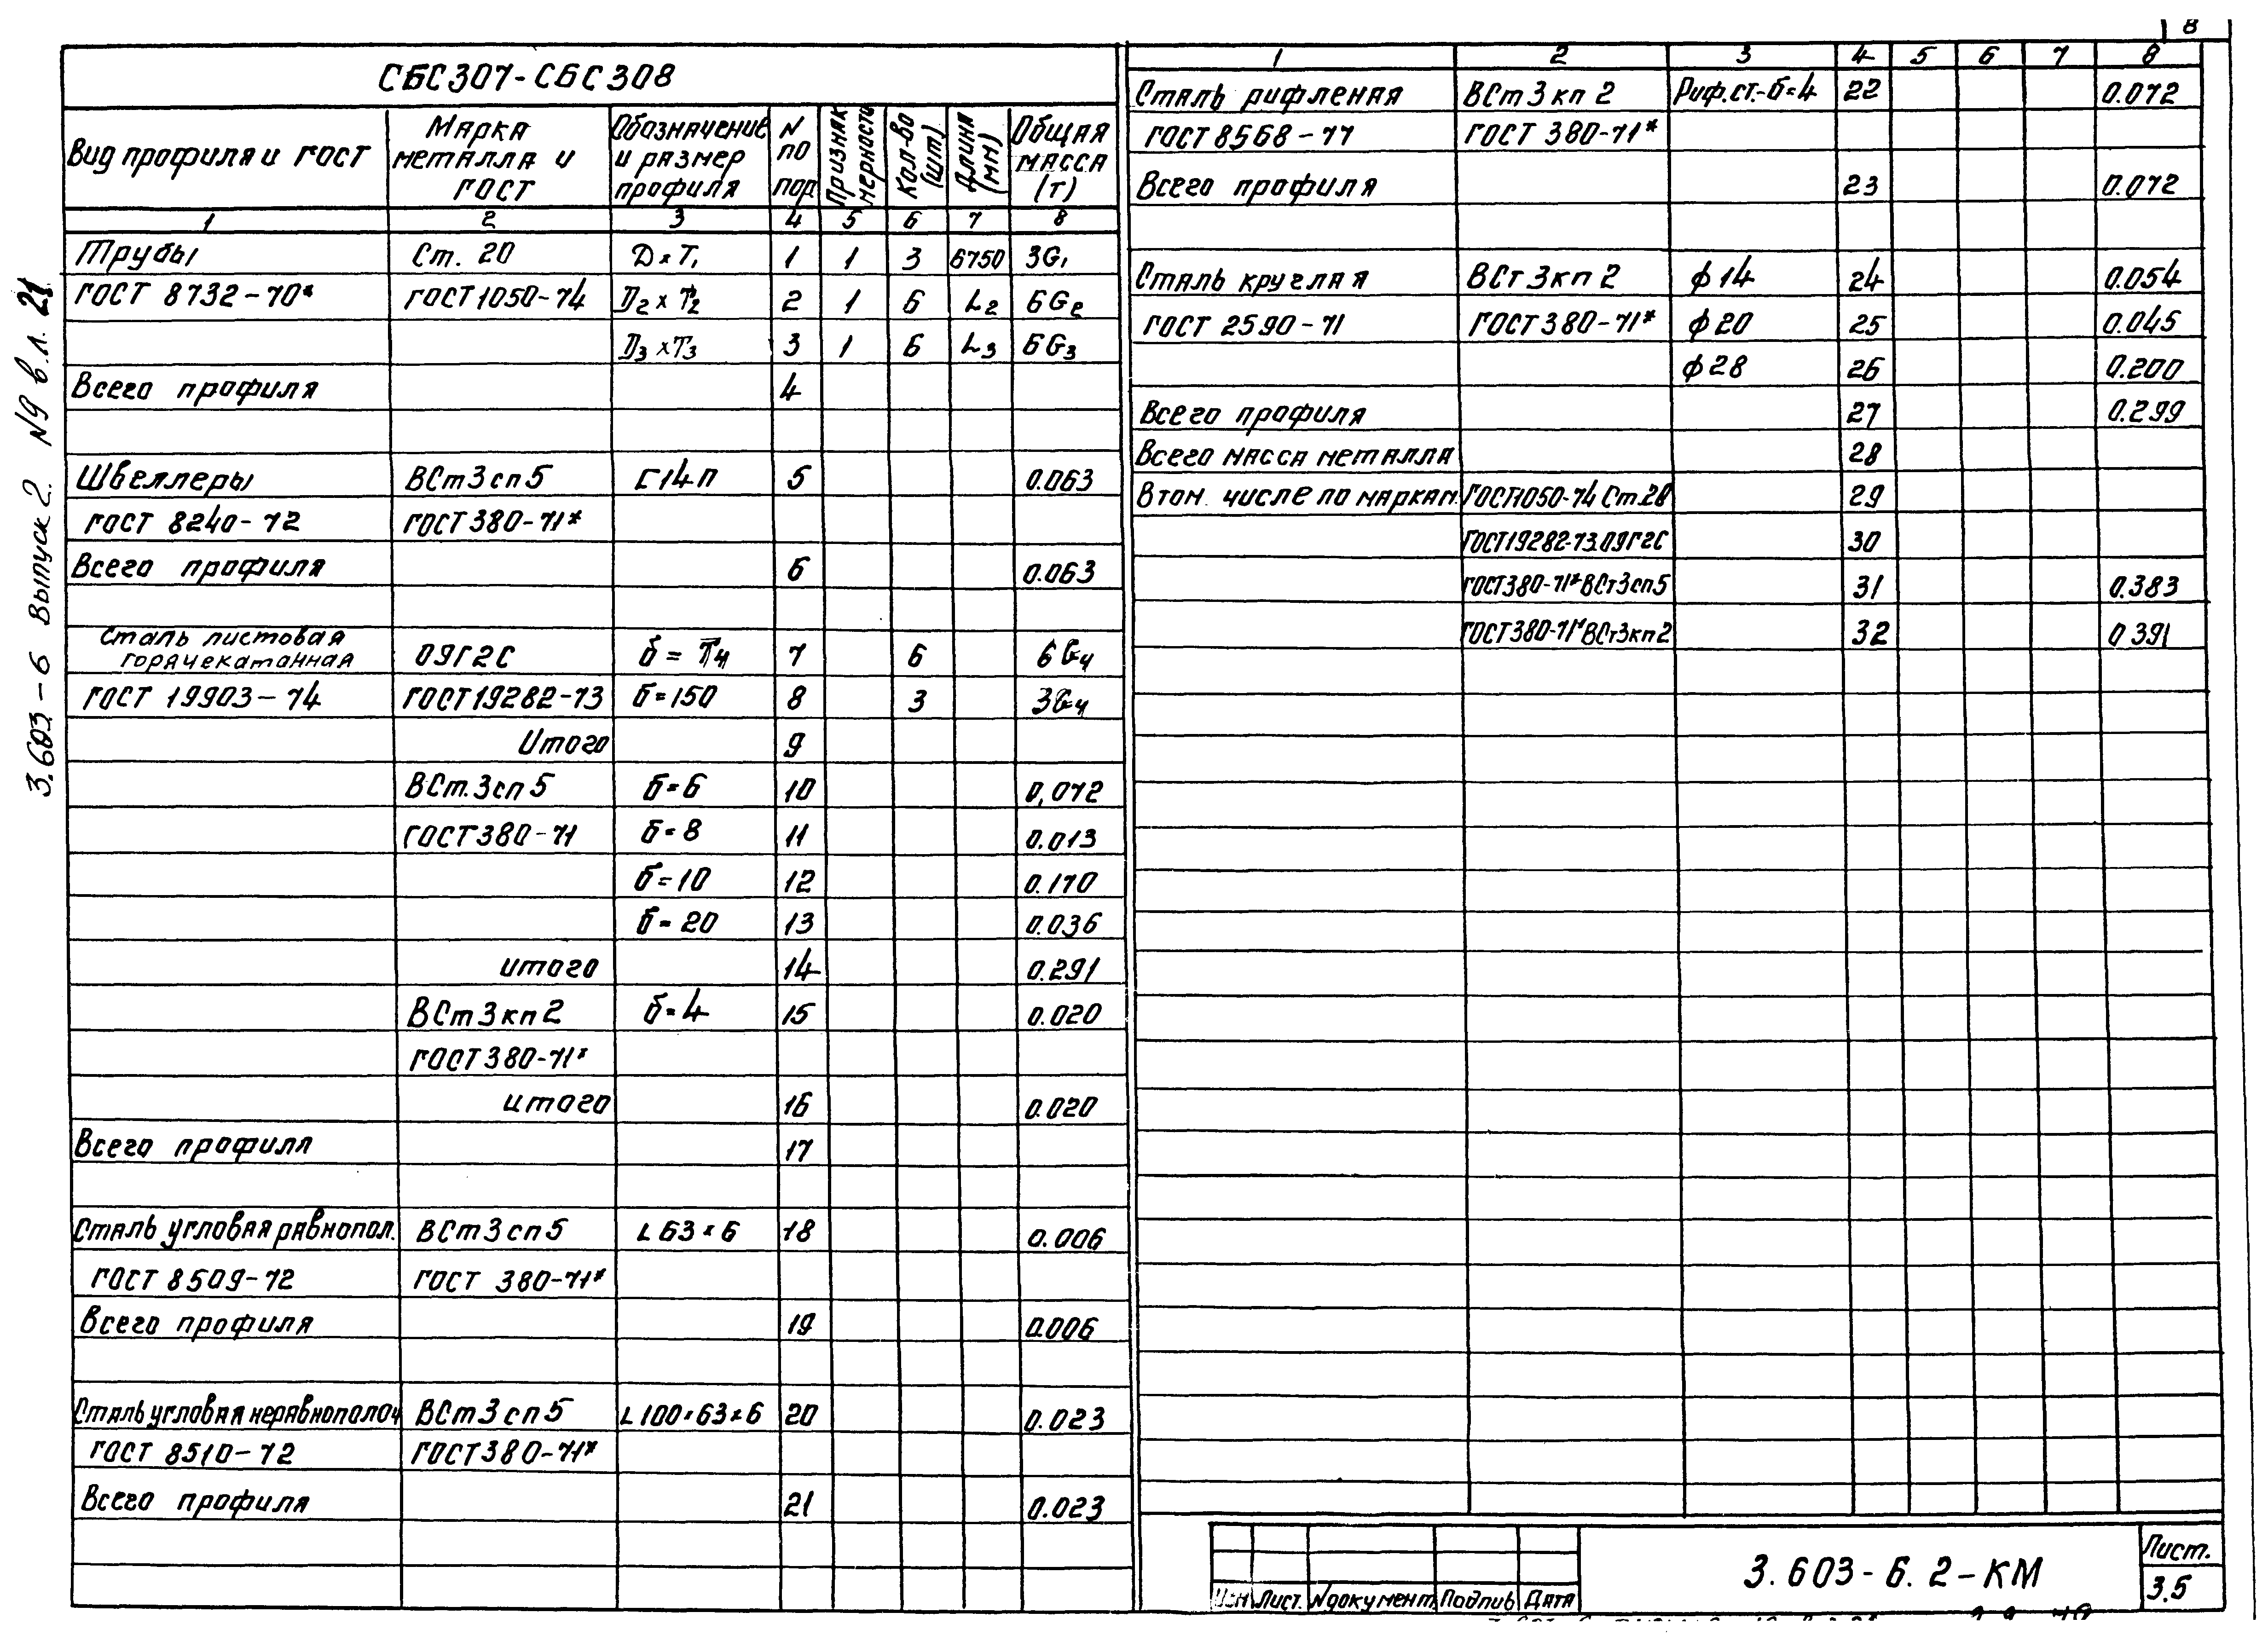 8
СБС307-СБС308
Вид профиля и ГОСТ | Марка металла и ГОСТ | Обозначение и размер профиля | N по пор | Признак мерности | Кол-во (шт) | Длина (мм) | Общая масса (т)
1 2 3 4 5 6 7 8
Трубы Ст. 20 D×T₁ 1 1 3 6750 3G₁
ГОСТ 8732-70* ГОСТ 1050-74 D₂ x T₂ 2 1 6 L₂ 6G₂
D₃ xT₃ 3 1 6 L₃ 6G₃
Всего профиля 4
Швеллеры ВСт3сп5 [14П 5 0.063
ГОСТ 8240-72 ГОСТ 380-71*
Всего профиля 6 0.063
Сталь листовая
горячекатанная 09Г2С б = T₄ 7 6 6G₄
ГОСТ 19903-74 ГОСТ19282-73 б=150 8 3 3G₄
Итого 9
ВСт.3сп5 б=6 10 0,072
ГОСТ380-71 б=8 11 0.013
б=10 12 0.170
б=20 13 0.036
итого 14 0.291
ВСт3кп2 б=4 15 0.020
ГОСТ380-71*
итого 16 0.020
Всего профиля 17
Сталь угловая равнопол. ВСт3сп5 L 63×6 18 0.006
ГОСТ 8509-72 ГОСТ 380-71*
Всего профиля 19 0.006
Сталь угловая неравнополоч ВСт3сп5 L100×63×6 20 0.023
ГОСТ 8510-72 ГОСТ380-71*
Всего профиля 21 0.023
1 2 3 4 5 6 7 8
Сталь рифленая ВСт3кп2 Риф.ст.-б=4 22 0.072
ГОСТ 8568-77 ГОСТ 380-71*
Всего профиля 23 0.072
Сталь круглая ВСт3кп2 ϕ14 24 0.054
ГОСТ 2590-71 ГОСТ380-71* ϕ20 25 0.045
ϕ28 26 0.200
Всего профиля 27 0.299
Всего масса металла 28
В том. числе по маркам. ГОСТ1050-74 Ст.20 29
ГОСТ19282-73.09Г2С 30
ГОСТ380-71*ВСт3сп5 31 0.383
ГОСТ380-71*ВСт3кп2 32 0.391
3.603-6 Выпуск 2. N9 в.л. 21
Изм Лист. Nдокумент. Подпив Дата
3.603-6.2-КМ
Лист.
3.5